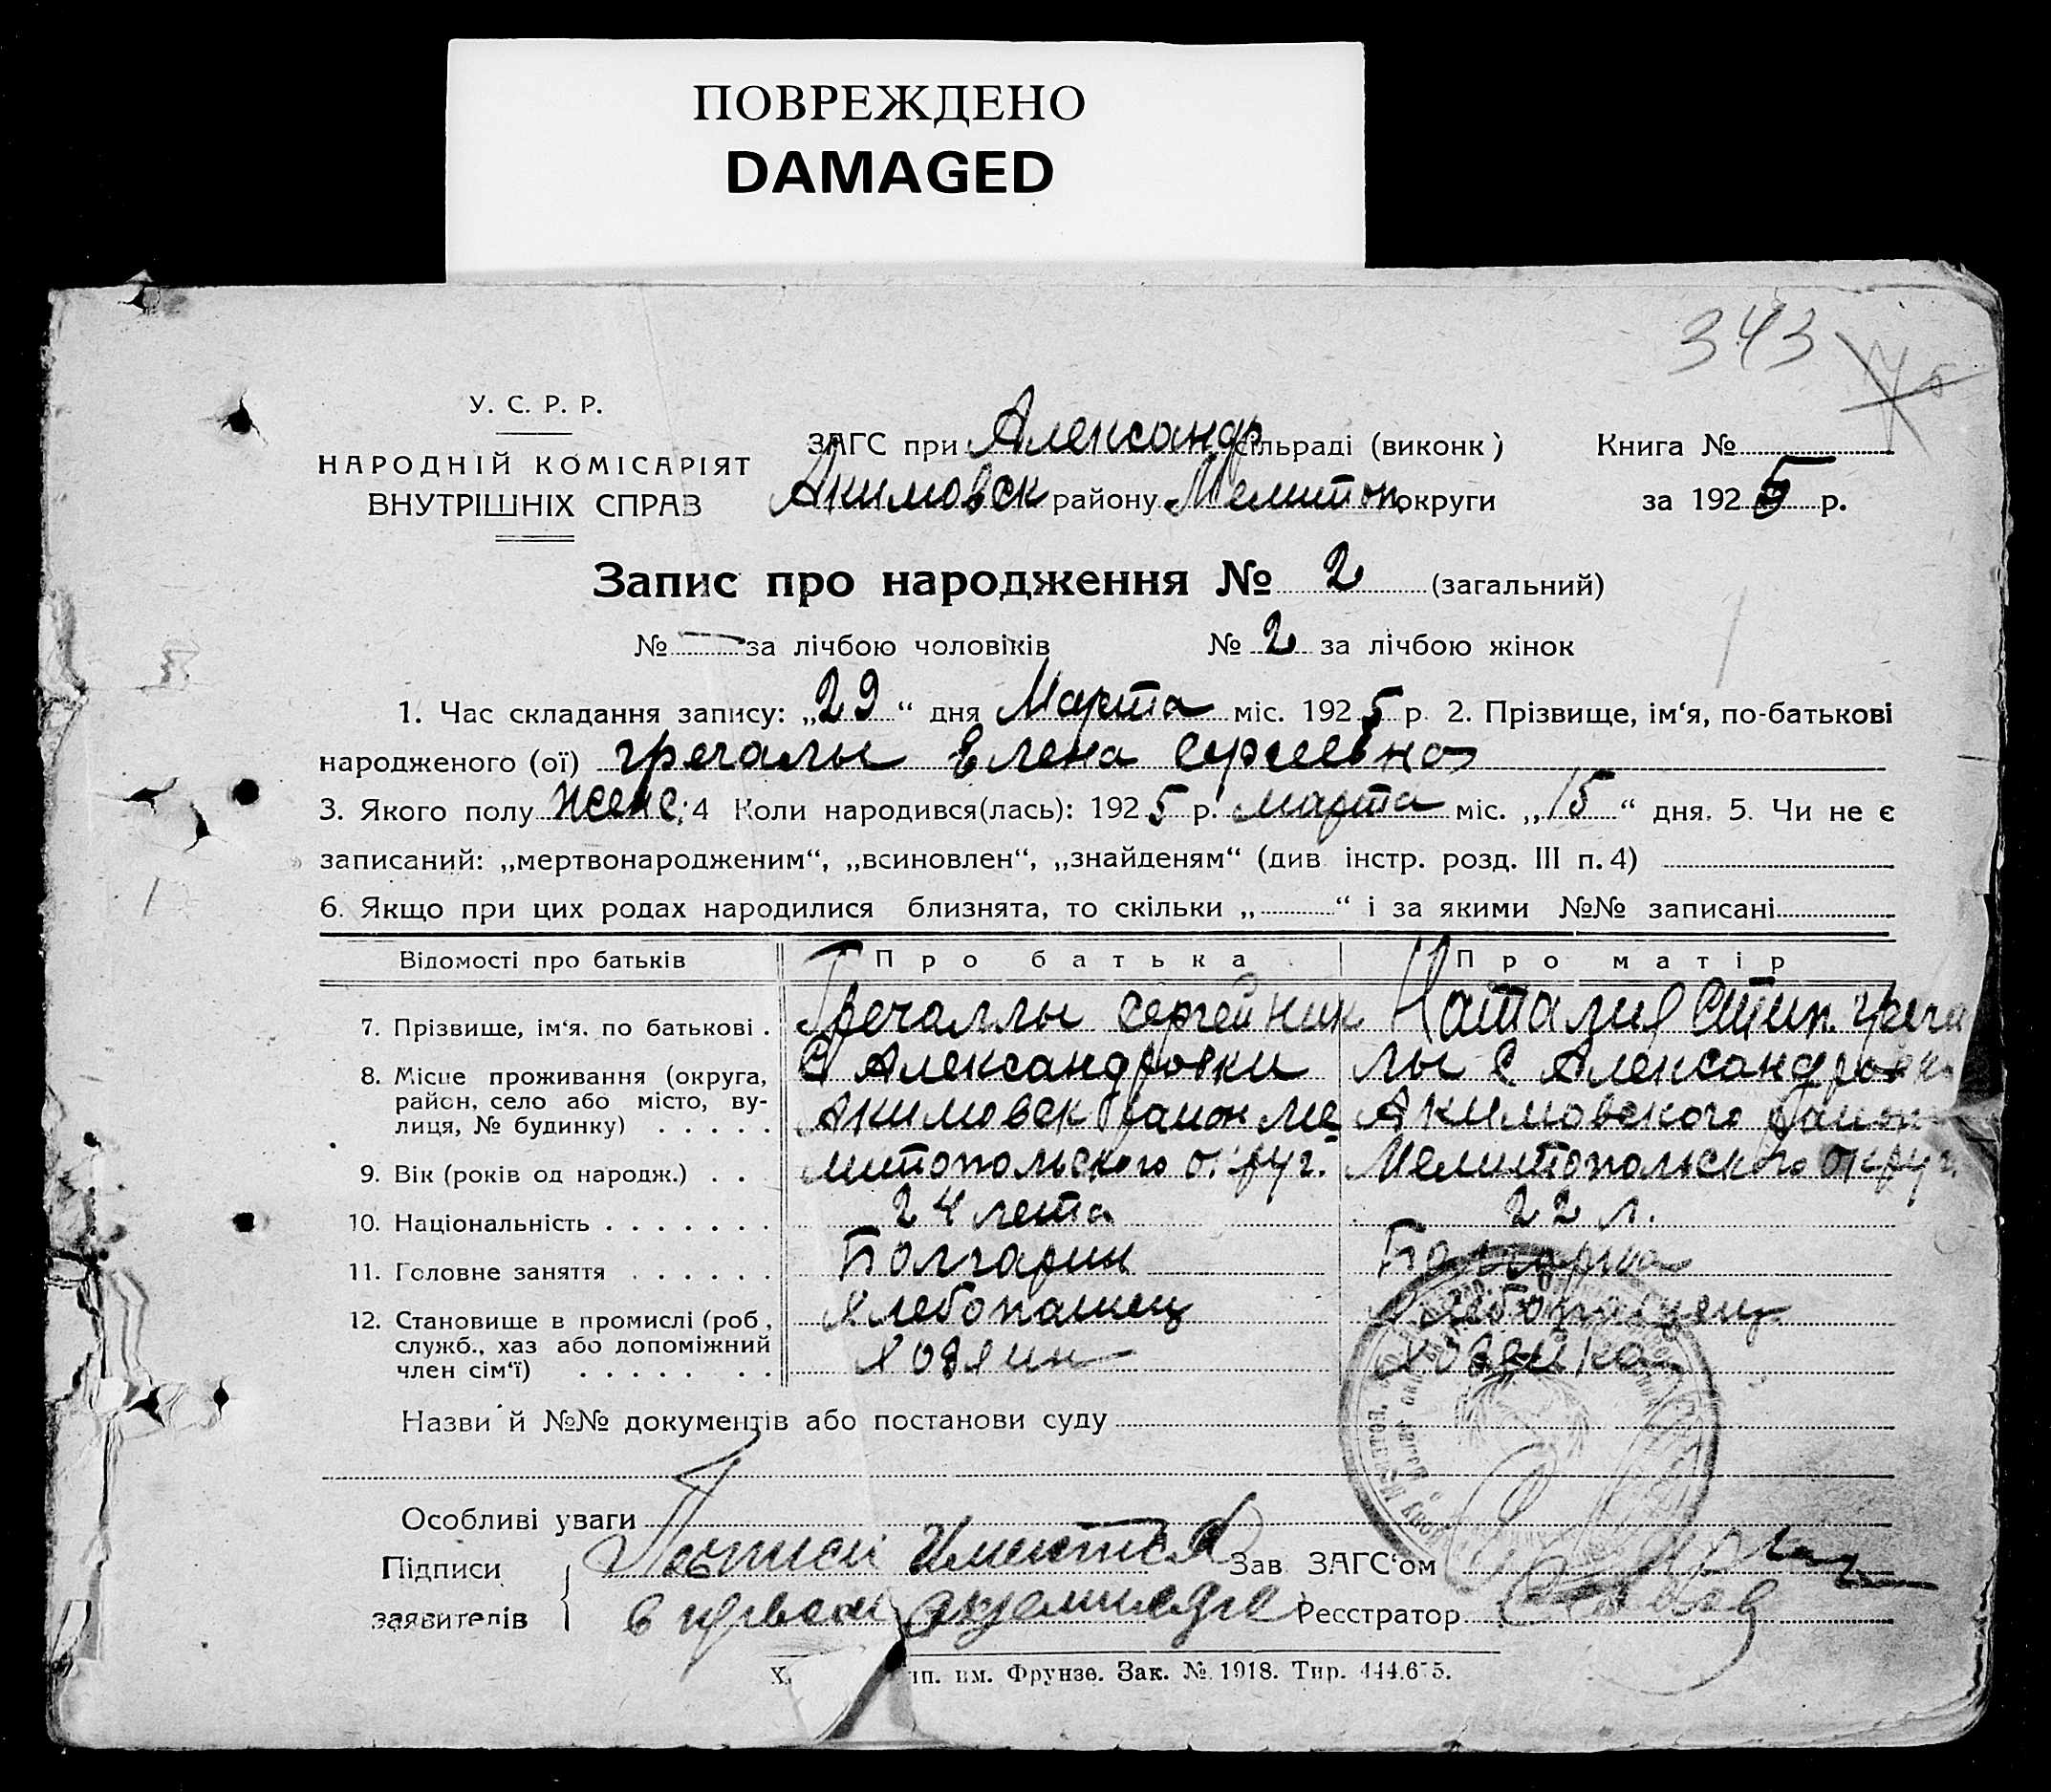 ПОВРЕЖДЕНО
DAMAGED
343
У. С. Р. Р.
НАРОДНІЙ КОМІСАРІЯТ
ВНУТРІШНІХ СПРАВ
ЗАГС при Александр сільраді (виконк)
Книга №
Акимовск району Мелитоп округи
за 1925 р.
Запис про народження № 2 (загальний)
№ — за лічбою чоловіків № 2 за лічбою жінок
1. Час складання запису: „29“ дня Марта міс. 1925 р. 2. Прізвище, ім‘я, по-батькові
народженого (ої) Гречалы Елена Сергеевна
3. Якого полу Женс; 4 Коли народився(лась): 1925 р. марта міс. „15“ дня. 5. Чи не є
записаний: „мертвонародженим“, „всиновлен“, „знайденям“ (див інстр. розд. III п. 4)
6. Якщо при цих родах народилися близнята, то скільки „ “ і за якими №№ записані
Відомості про батьків Про батька Про матір
7. Прізвище, ім‘я. по батькові . Гречаллы Сергей Ник Наталия Степ. Греча
8. Місце проживання (округа, С Александровки лы С Александровки
район, село або місто, ву-
лиця, № будинку) . . . . . Акимовск район Ме Акимовского район
9. Вік (років од народж.) . . литопольского округ. Мелитопольского округ.
10. Національність . . . . . . . 24 лета 22 л.
11. Головне заняття . . . . . . Болгарин Болгарка
12. Становище в промислі (роб, Хлебопашец Хлебопашец
служб., хаз або допоміжний Хозяин Хозяйка
член сім‘ї) . . . . . . .
Назви й №№ документів або постанови суду
Особливі уваги
Підписи Подписи Имеются Зав ЗАГС‘ом
заявителів в первом экземпляре Реєстратор
им. Фрунзе. Зак. № 1918. Тир. 444.675.